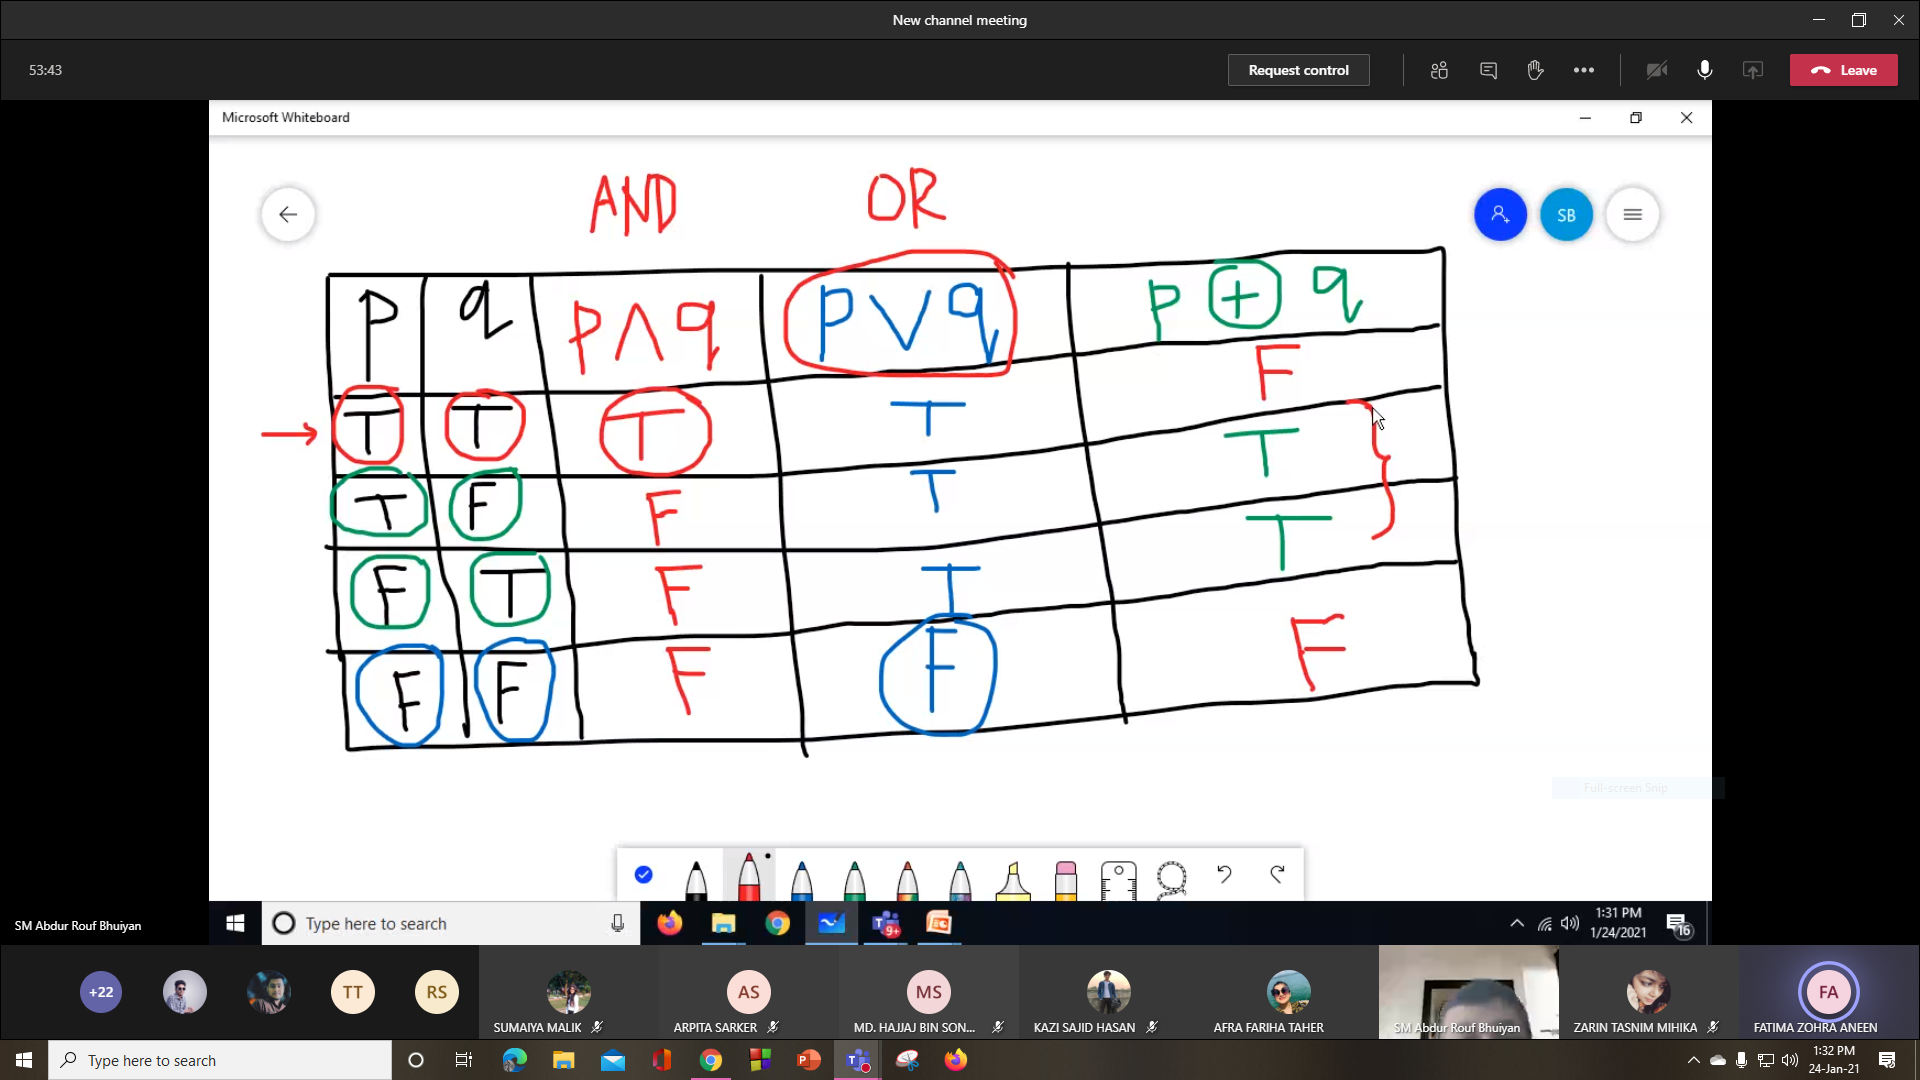 New channel meeting
53:43
Request control
Leave
Microsoft Whiteboard
AND OR
SB
p q p∧q p∨q p ⊕ q
T T T T F
T F F T T
F T F T T
F F F F F
Full-screen Snip
SM Abdur Rouf Bhuiyan
Type here to search
9+
1:31 PM
1/24/2021
16
+22
TT
RS
AS
MS
FA
SUMAIYA MALIK
ARPITA SARKER
MD. HAJJAJ BIN SON...
KAZI SAJID HASAN
AFRA FARIHA TAHER
SM Abdur Rouf Bhuiyan
ZARIN TASNIM MIHIKA
FATIMA ZOHRA ANEEN
Type here to search
1:32 PM
24-Jan-21